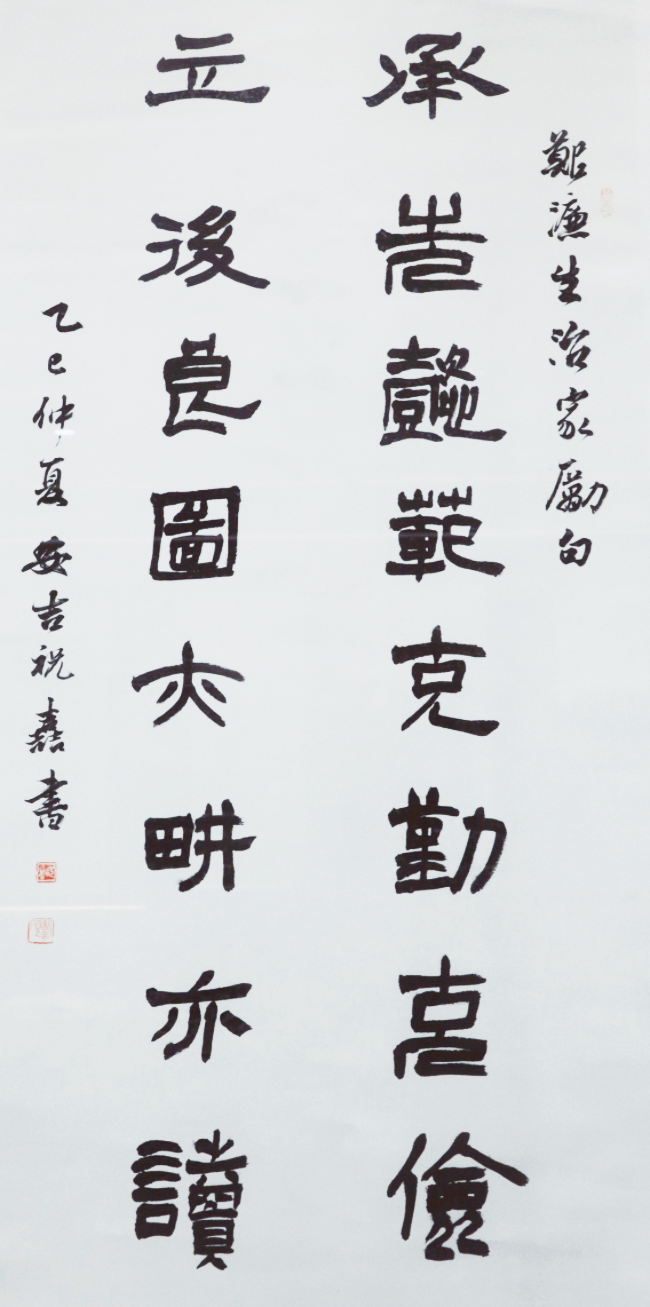 鄭濂生治家勵句
承先懿範克勤克儉
立後良圖亦畊亦讀
乙巳仲夏安吉祝書